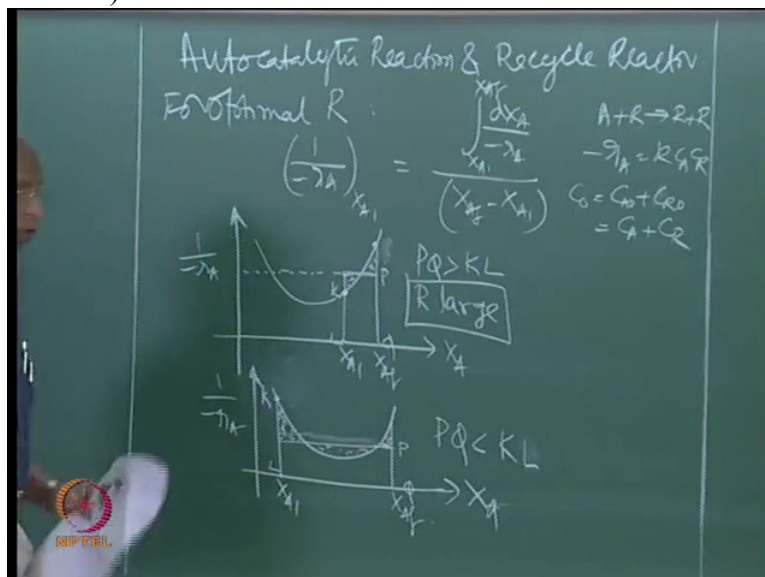 Autocatalytic Reaction & Recycle Reactor
For Optimal R :
(1/-r_A)_{X_{A1}} = ∫_{X_{A1}}^{X_{Af}} dX_A/-r_A / (X_{Af} - X_{A1})
A + R → R + R
-r_A = k C_A C_R
C_0 = C_{A0} + C_{R0}
= C_A + C_R
1/-r_A
K
P
PQ > KL
R large
X_{A1}
X_{Af}
X_A
1/-r_A
K
P
PQ < KL
L
X_{A1}
X_{Af}
X_A
NPTEL